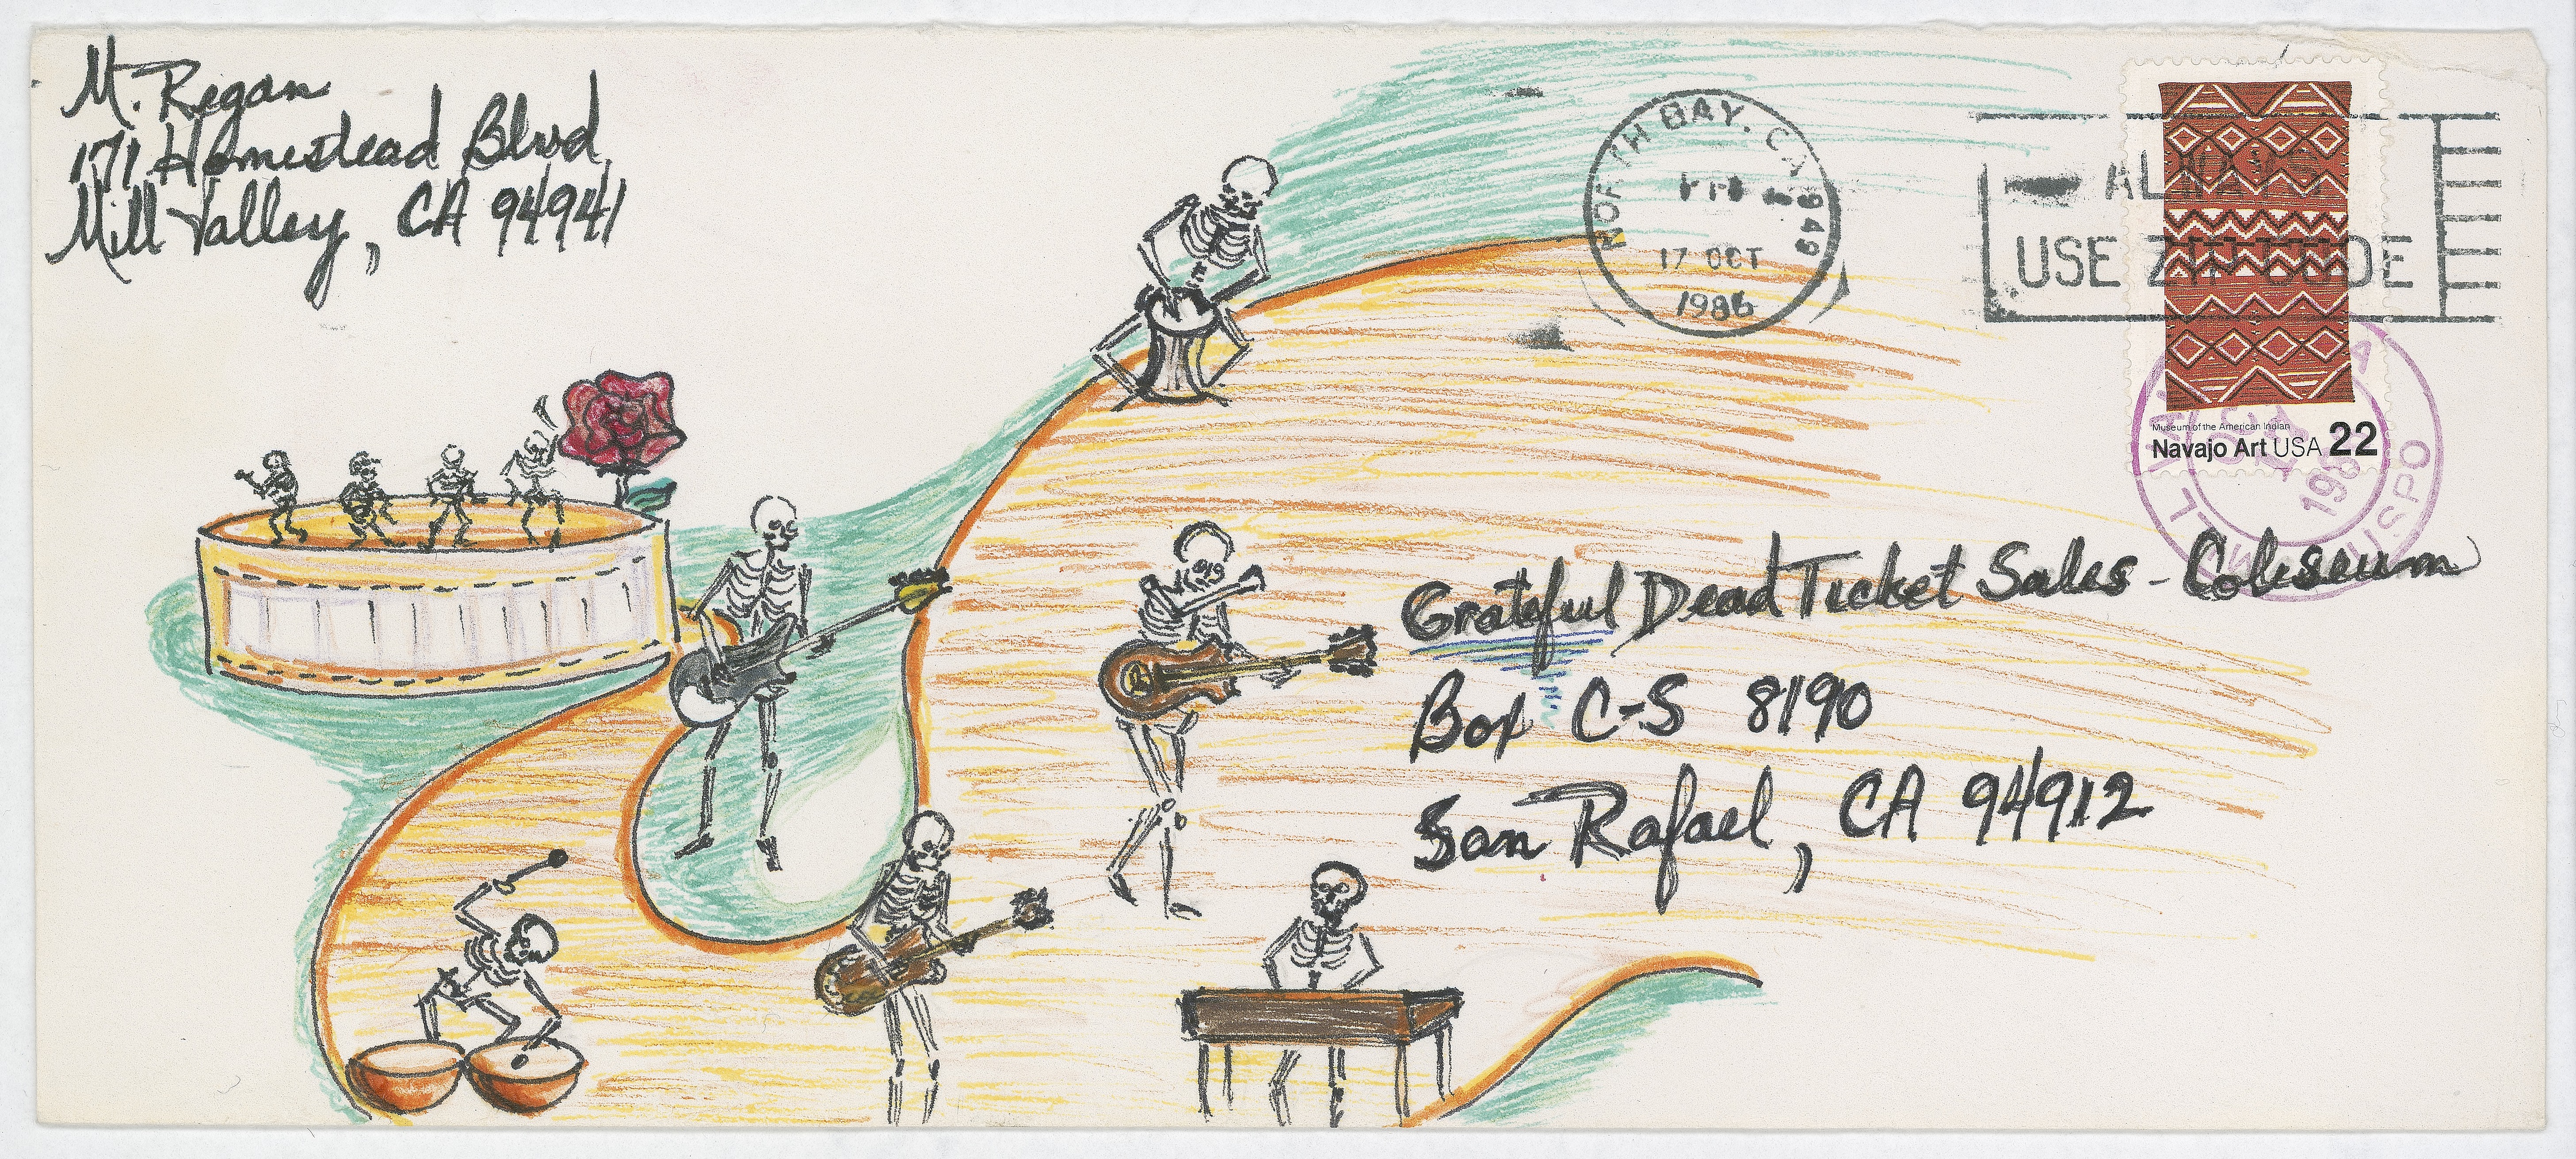 M. Regan
171 Homestead Blvd
Mill Valley, CA 94941
NORTH BAY, CA 949
PM
17 OCT
1986
USE ZIP CODE
Museum of the American Indian
Navajo Art USA 22
USPO
Grateful Dead Ticket Sales - Coliseum
Box C-S 8190
San Rafael, CA 94912